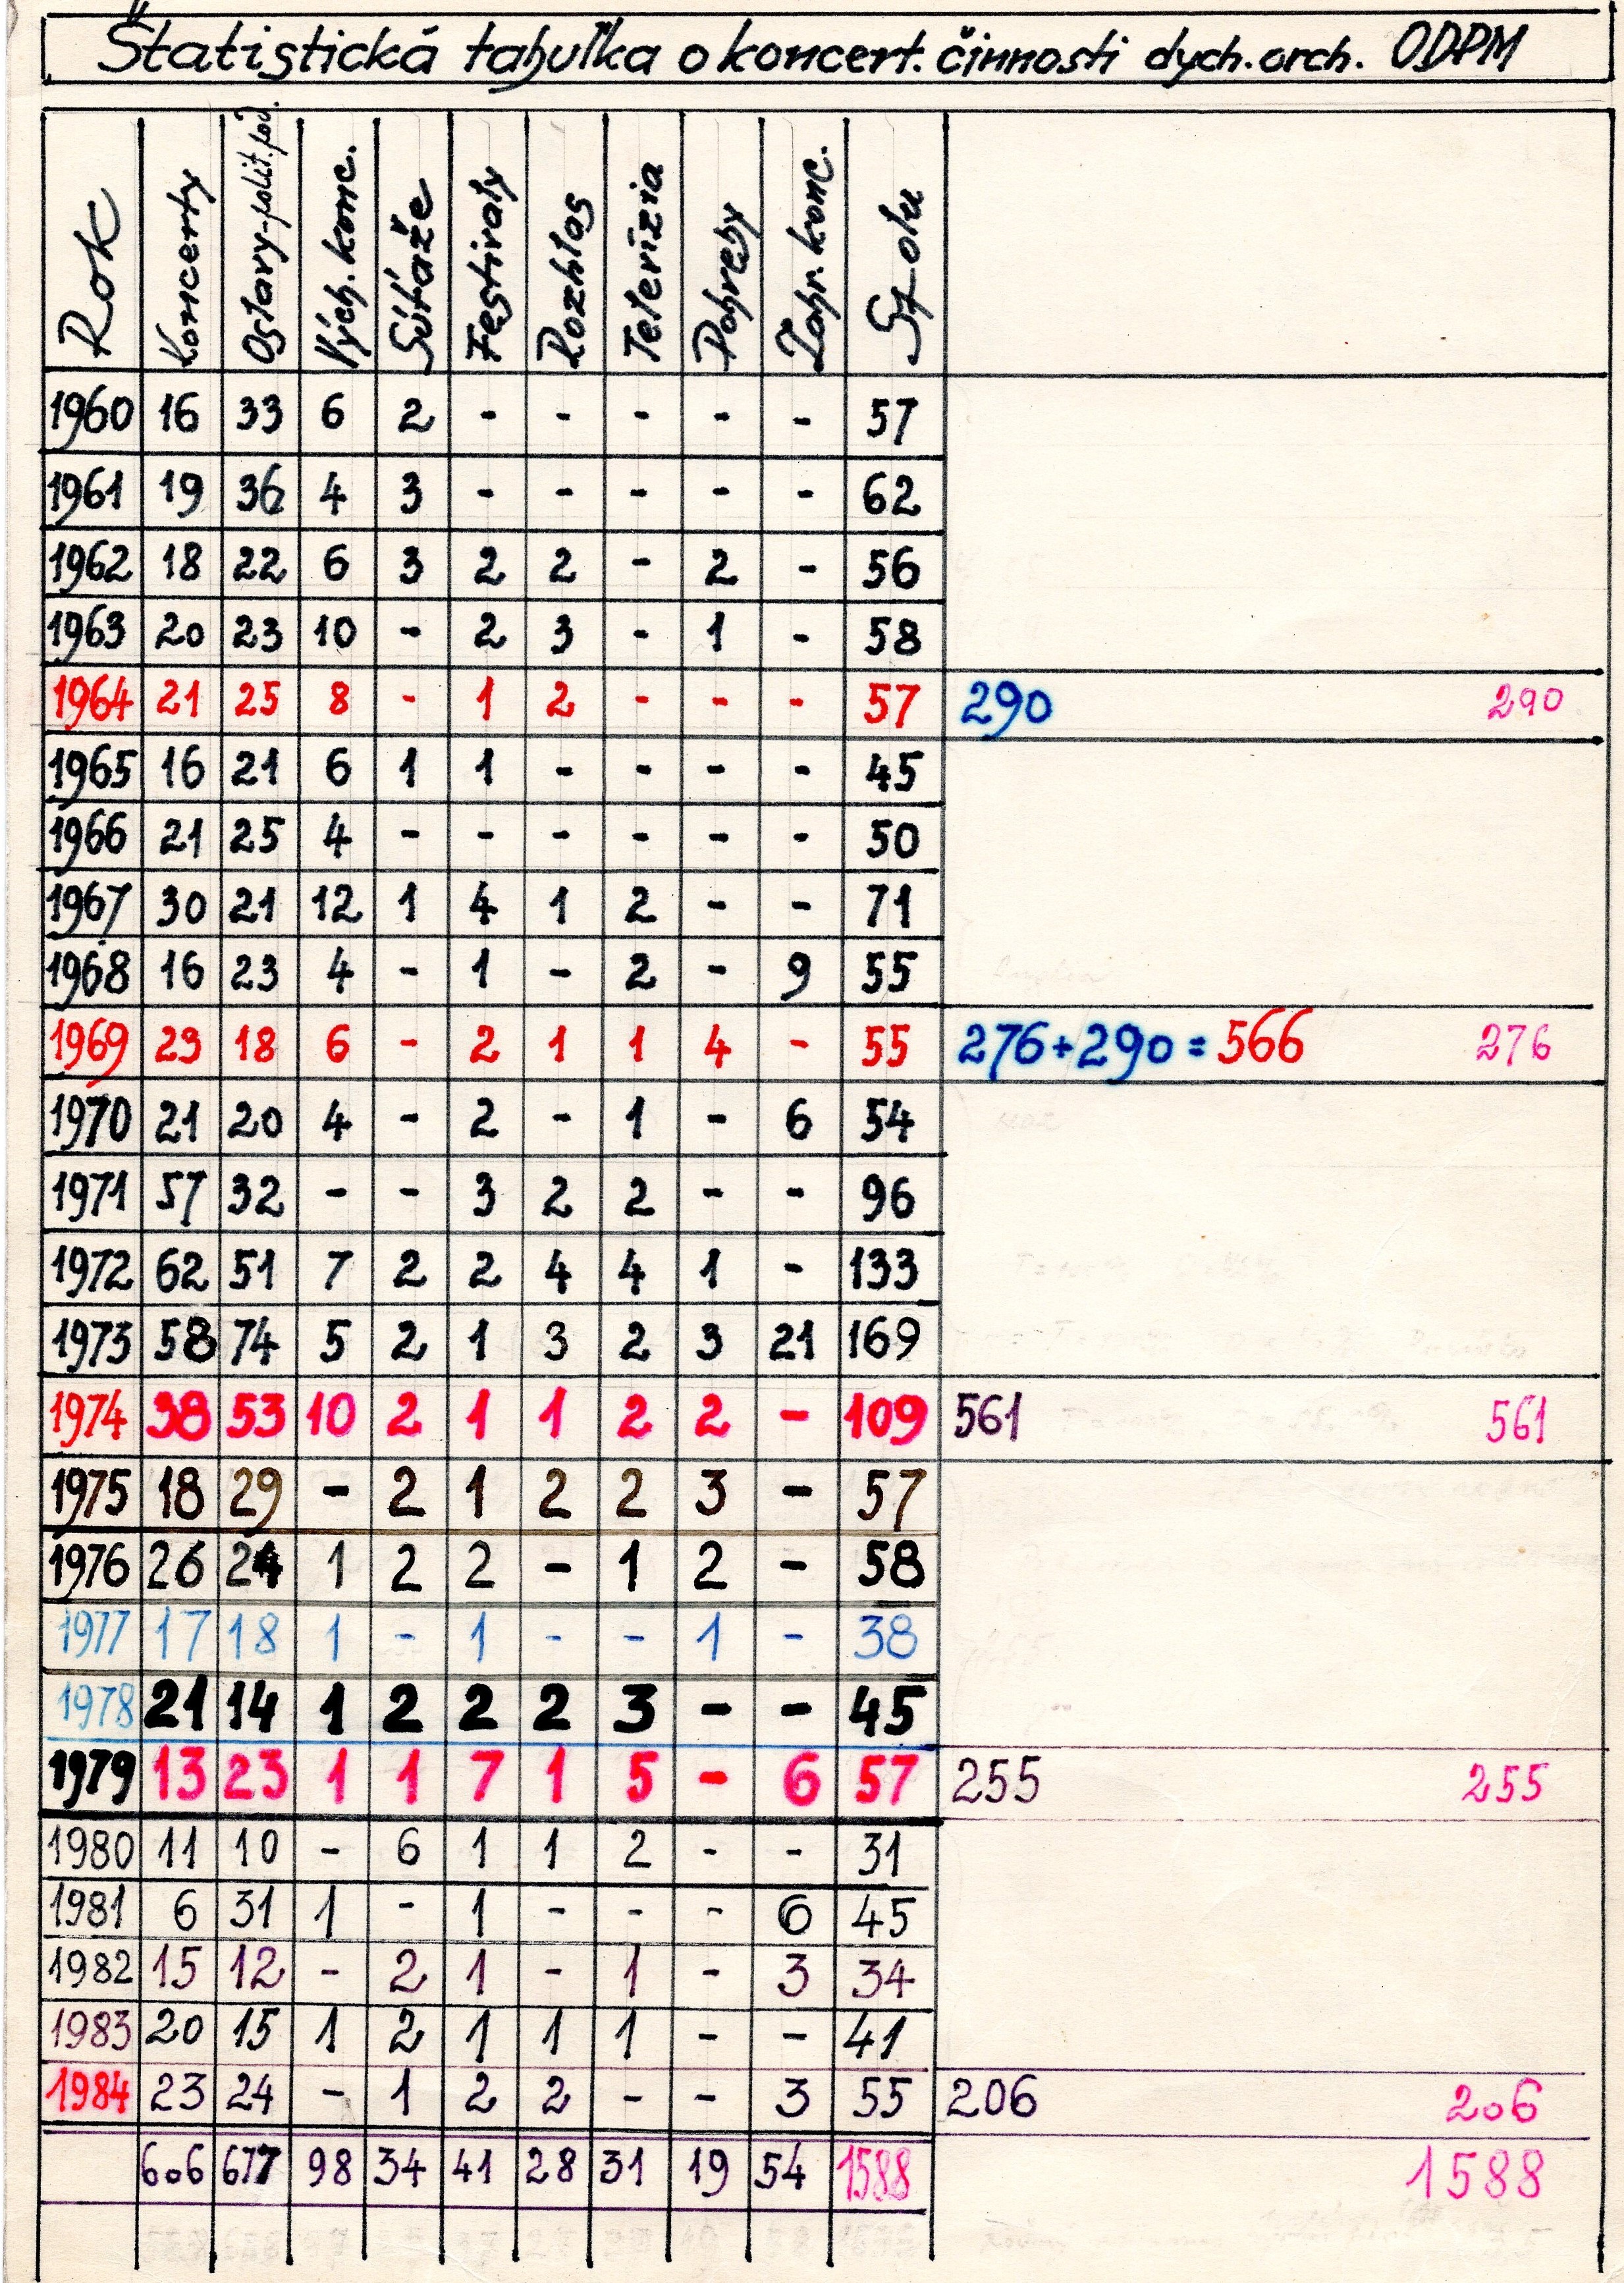 Štatistická tabuľka o koncert. činnosti dych. orch. ODPM
Rok Koncerty Oslavy-polit. pod. Vých. konc. Súťaže Festivaly Rozhlas Televízia Pohreby Zahr. konc. Spolu
1960 16 33 6 2 - - - - - 57
1961 19 36 4 3 - - - - - 62
1962 18 22 6 3 2 2 - 2 - 56
1963 20 23 10 - 2 3 - 1 - 58
1964 21 25 8 - 1 2 - - - 57 290 290
1965 16 21 6 1 1 - - - - 45
1966 21 25 4 - - - - - - 50
1967 30 21 12 1 4 1 2 - - 71
1968 16 23 4 - 1 - 2 - 9 55
1969 23 18 6 - 2 1 1 4 - 55 276+290=566 276
1970 21 20 4 - 2 - 1 - 6 54
1971 57 32 - - 3 2 2 - - 96
1972 62 51 7 2 2 4 4 1 - 133
1973 58 74 5 2 1 3 2 3 21 169
1974 38 53 10 2 1 1 2 2 - 109 561 561
1975 18 29 - 2 1 2 2 3 - 57
1976 26 24 1 2 2 - 1 2 - 58
1977 17 18 1 - 1 - - 1 - 38
1978 21 14 1 2 2 2 3 - - 45
1979 13 23 1 1 7 1 5 - 6 57 255 255
1980 11 10 - 6 1 1 2 - - 31
1981 6 31 1 - 1 - - - 6 45
1982 15 12 - 2 1 - 1 - 3 34
1983 20 15 1 2 1 1 1 - - 41
1984 23 24 - 1 2 2 - - 3 55 206 206
606 677 98 34 41 28 31 19 54 1588 1588